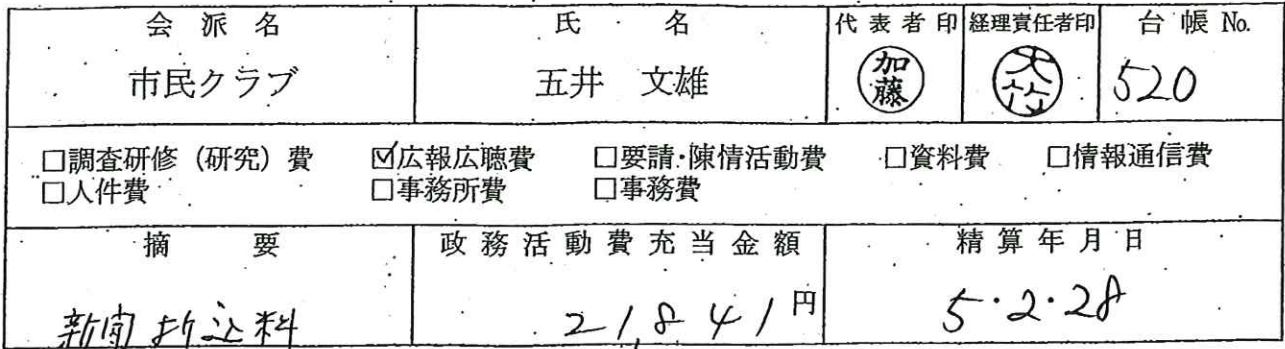 会派名 氏名 代表者印 経理責任者印 台帳 No.
市民クラブ 五井 文雄 加藤 大竹 520
□調査研修（研究）費 ☑広報広聴費 □要請・陳情活動費 □資料費 □情報通信費
□人件費 □事務所費 □事務費
摘要 政務活動費充当金額 精算年月日
新聞折込料 21,841円 5・2・28